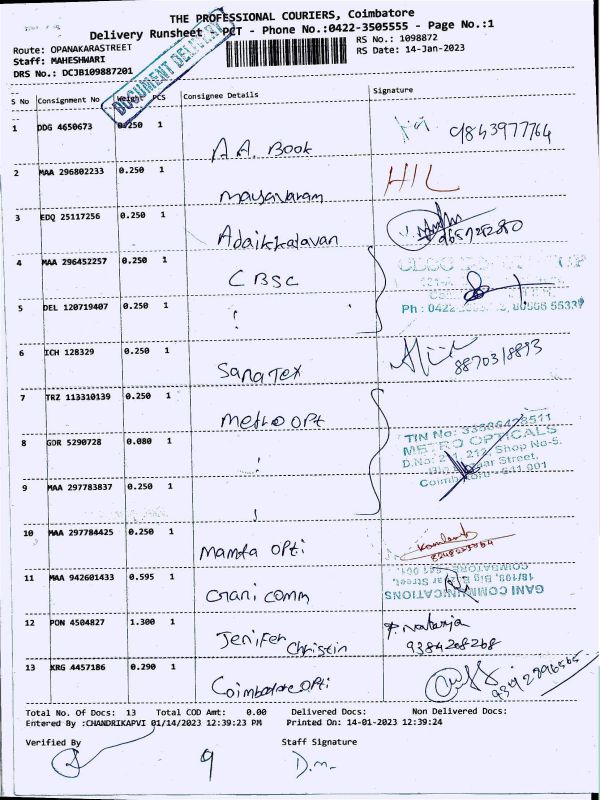 THE PROFESSIONAL COURIERS, Coimbatore
Delivery Runsheet - PCT - Phone No.:0422-3505555 - Page No.:1
Route: OPANAKARASTREET
RS No.: 1098872
Staff: MAHESHWARI
RS Date: 14-Jan-2023
DRS No.: DCJB109887201
DOCUMENT DELIVERY
S No Consignment No Weight PCS Consignee Details Signature
1 DDG 4650673 0.250 1 A A. Book 9843977764
2 MAA 296802233 0.250 1 mayavaram HIL
3 EDQ 25117256 0.250 1 Adaikkalavan
4 MAA 296452257 0.250 1 CBSC
5 DEL 120719407 0.250 1 Ph : 0422
6 ICH 128329 0.250 1 Sana Tex 8870318893
7 TRZ 113310139 0.250 1 metro opt
8 GOR 5290728 0.080 1
TIN No: 33586428511
METRO OPTICALS
D.No: 211, 212, Shop No-5.
Street,
Coimbatore - 641 001
9 MAA 297783837 0.250 1
10 MAA 297784425 0.250 1 mamta opti
11 MAA 942601433 0.595 1 Gani comm
GANI COMMUNICATIONS
18/108, Big Bazaar Street,
COIMBATORE - 641 001.
12 PON 4504827 1.300 1 Jenifer Christin P. Nataraja
9384268268
13 KRG 4457186 0.290 1 Coimbatore opti 9342296565
Total No. Of Docs: 13 Total COD Amt: 0.00 Delivered Docs: Non Delivered Docs:
Entered By :CHANDRIKAPVI 01/14/2023 12:39:23 PM Printed On: 14-01-2023 12:39:24
Verified By Staff Signature
9 D.m.